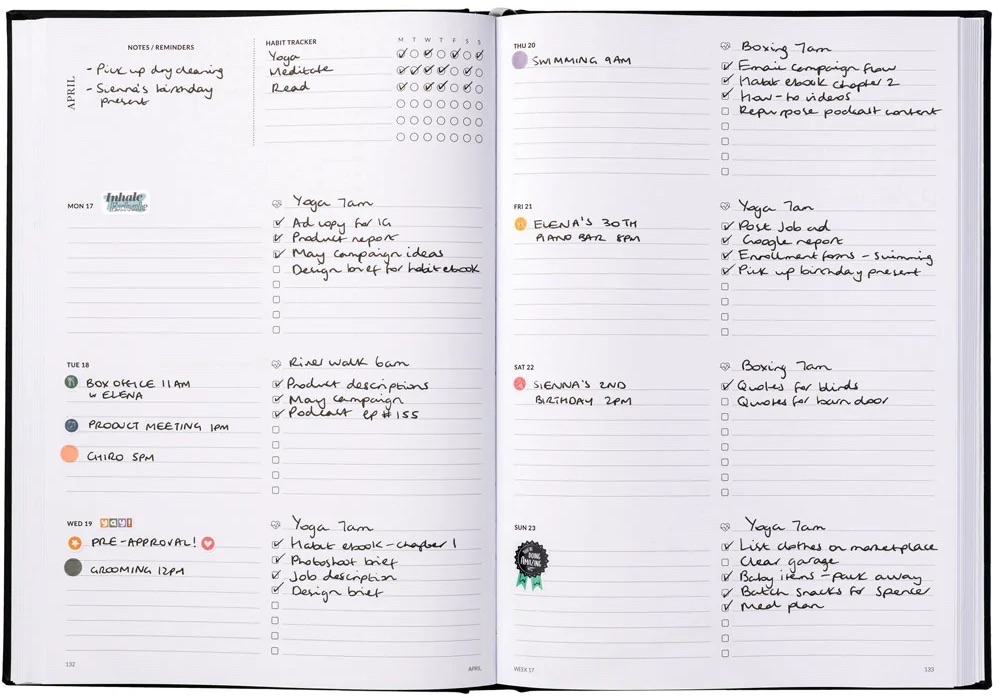 NOTES / REMINDERS
APRIL
- Pick up dry cleaning
- Sienna's birthday
present
HABIT TRACKER
M T W T F S S
Yoga
Meditate
Read
MON 17
Inhale
Yoga 7am
Ad copy for IG
Product report
May campaign ideas
Design brief for habit ebook
TUE 18
BOX OFFICE 11AM
W ELENA
PRODUCT MEETING 1PM
CHIRO 5PM
River walk 6am
Product descriptions
May campaign
Podcast ep #155
WED 19
yay!
PRE-APPROVAL!
GROOMING 12PM
Yoga 7am
Habit ebook - chapter 1
Photoshoot brief
Job description
Design brief
132
APRIL
THU 20
SWIMMING 9AM
Boxing 7am
Email campaign flow
Habit ebook chapter 2
How-to videos
Repurpose podcast content
FRI 21
ELENA'S 30TH
PIANO BAR 8PM
Yoga 7am
Post job ad
Google report
Enrollment forms - swimming
Pick up birthday present
SAT 22
SIENNA'S 2ND
BIRTHDAY 2PM
Boxing 7am
Quotes for blinds
Quotes for barn door
SUN 23
DOING
AMAZING
Yoga 7am
List clothes on marketplace
Clear garage
Baby items - pack away
Batch snacks for Spencer
Meal plan
WEEK 17
133